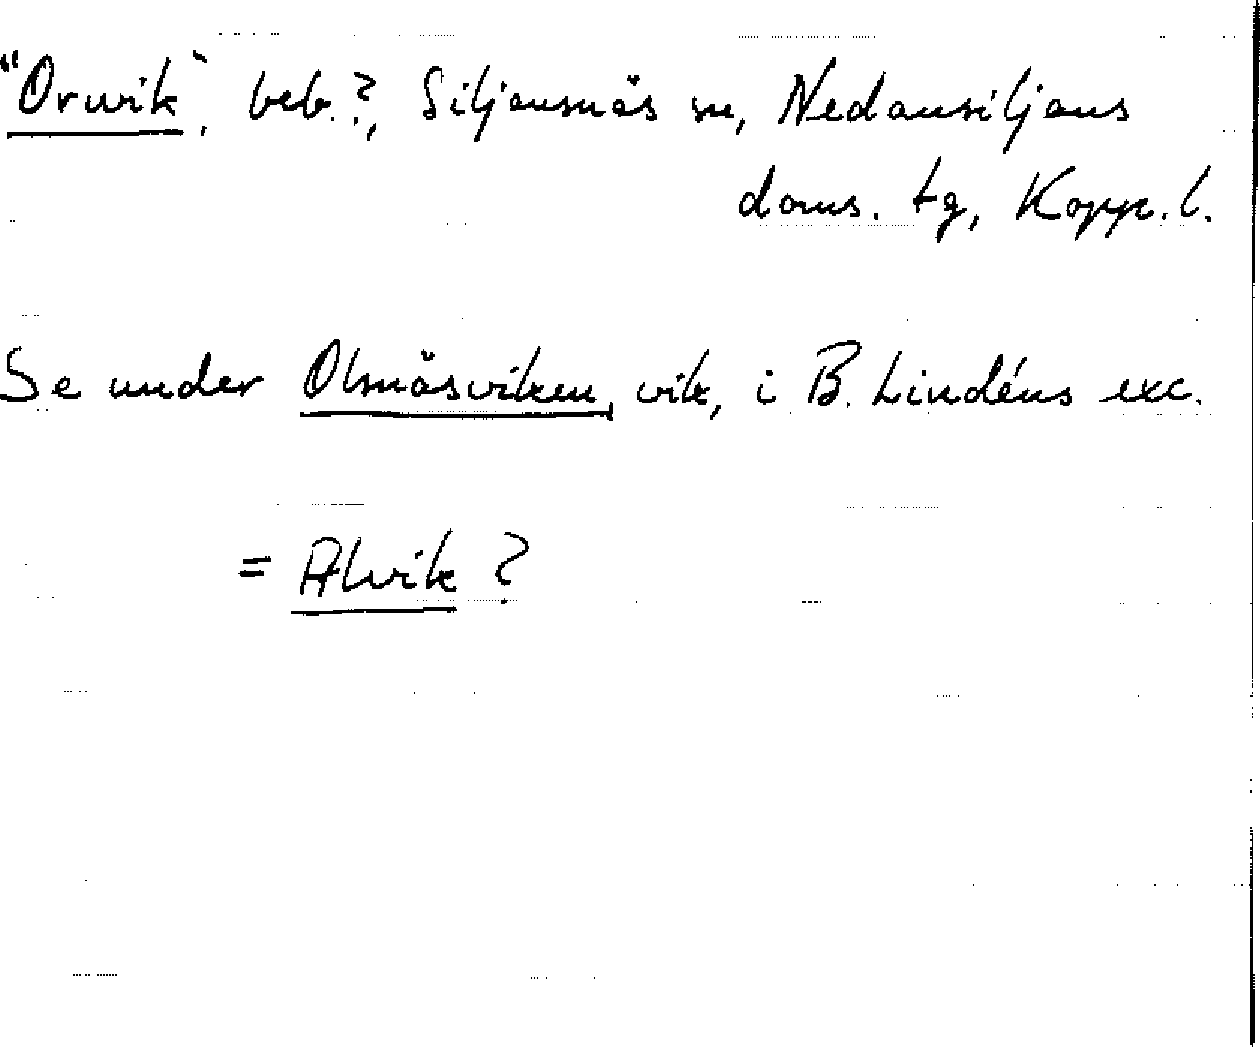 "Orwik", beb.?, Siljansnäs sn, Nedansiljans
doms. tg, Kopp. l.
Se under Olmäsviken, vik, i B. Lindéns exc.
= Alvik ?